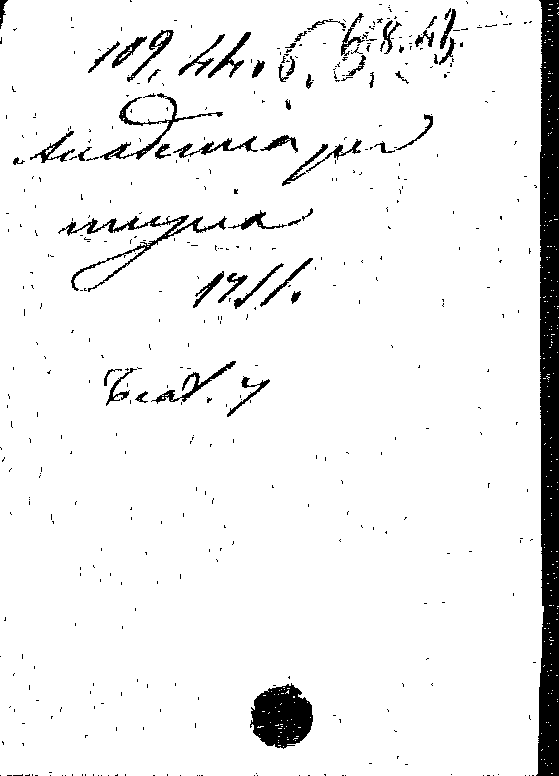 109. 44. 6. 6.8.43.
Academia per
musica
1711.
Teat. 4